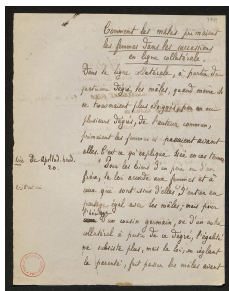 Comment les mâles primaient
les femmes dans les successions
en ligne collatérale.
Dans la ligne collatérale, à partir du
degré, les mâles, quand même ils
se trouvaient plus éloignés, ou en
plusieurs degrés, de l'auteur commun,
primaient les femmes et passaient avant
elles. C'est ce qu'explique Isée en ces termes
Pour les biens d'un père ou d'un
frère, la loi accorde aux femmes et à
ceux qui sont issus d'elles d'entrer en
partage égal avec les mâles, mais pour
d'un cousin germain, ou d'un autre
collatéral à partir de ce degré, l'égalité
ne subsiste plus, mais la loi, en réglant
la parenté, fait passer les mâles avant
Isée de hered.
20.